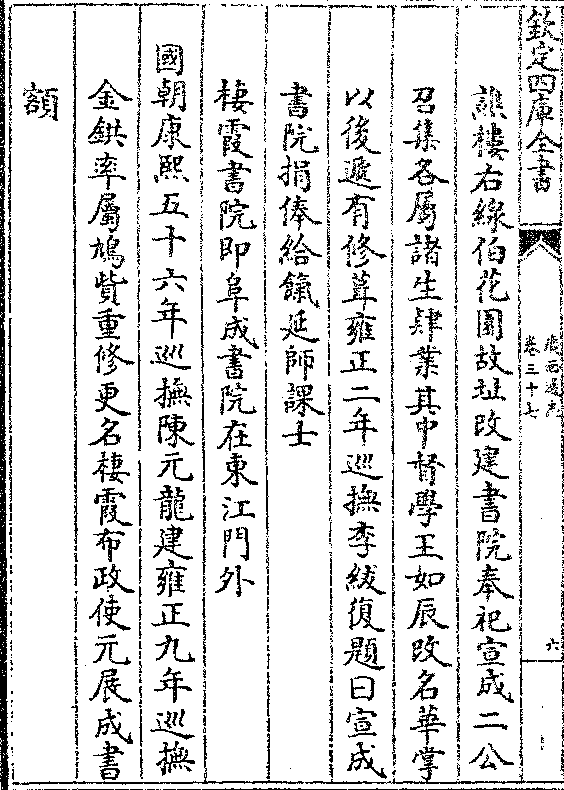 欽定四庫全書
廣西通志
卷三十七
六
譙樓右線伯花園故址改建書院奉祀宣成二公
召集各屬諸生肄業其中督學王如辰改名華掌
以後遞有修葺雍正二年巡撫李紱復題曰宣成
書院捐俸給餼延師課士
棲霞書院即阜成書院在東江門外
國朝康熙五十六年巡撫陳元龍建雍正九年巡撫
金鉷率屬鳩貲重修更名棲霞布政使元展成書
額